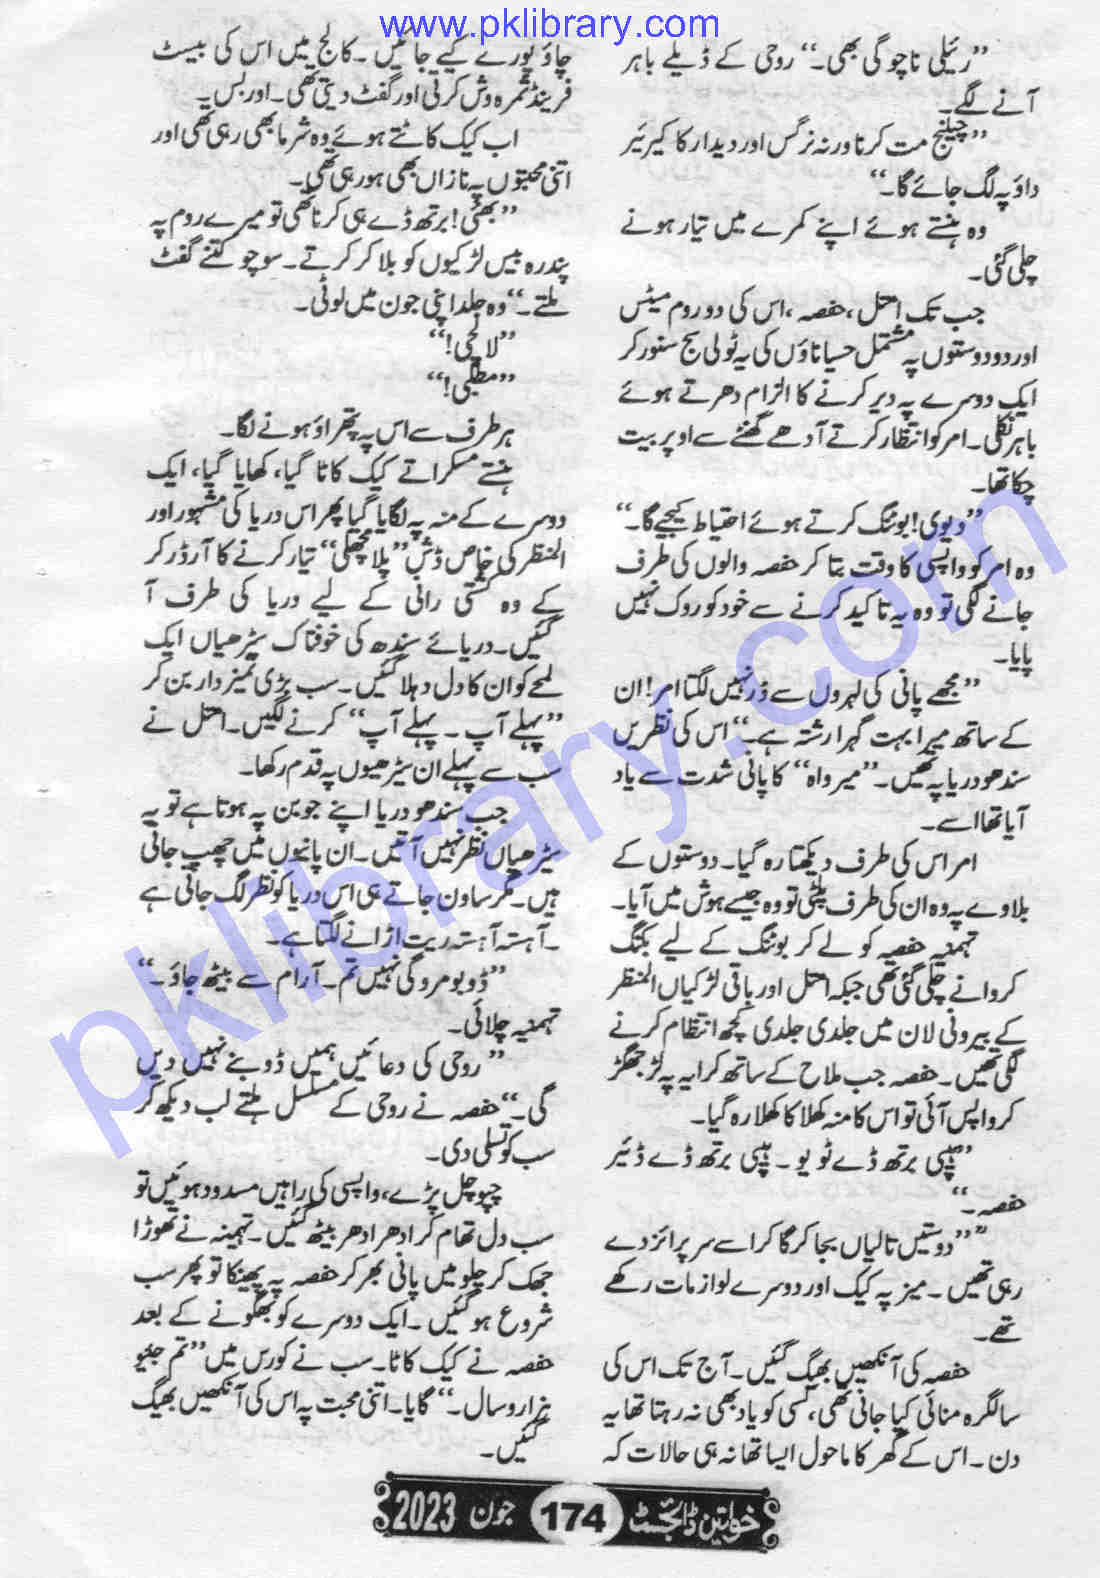 www.pklibrary.com
”رئیلی ناچو گی بھی۔“ روحی کے ڈیلے باہر
آنے لگے۔
”چیلنج مت کرنا ورنہ نرگس اور دیدار کا کیریئر
داؤ پہ لگ جائے گا۔“
وہ ہنستے ہوئے اپنے کمرے میں تیار ہونے
چلی گئی۔
جب تک امتل، حفصہ، اس کی دو روم میٹس
اور دو دوستوں پہ مشتمل حسیناؤں کی یہ ٹولی سج سنور کر
ایک دوسرے پہ دیر کرنے کا الزام دھرتے ہوئے
باہر نکلی۔ امر کو انتظار کرتے آدھے گھنٹے سے اوپر بیت
چکا تھا۔
”دیوی! بوٹنگ کرتے ہوئے احتیاط کیجیے گا۔“
وہ امر کو واپسی کا وقت بتا کر حفصہ والوں کی طرف
جانے لگی تو وہ یہ تاکید کرنے سے خود کو روک نہیں
پایا۔
”مجھے پانی کی لہروں سے ڈر نہیں لگتا امر! ان
کے ساتھ میرا بہت گہرا رشتہ ہے۔“ اس کی نظریں
سندھو دریا پہ تھیں۔ ”میر واہ“ کا پانی شدت سے یاد
آیا تھا اسے۔
امر اس کی طرف دیکھتا رہ گیا۔ دوستوں کے
بلاوے پہ وہ ان کی طرف پلٹی تو وہ جیسے ہوش میں آیا۔
تہمنیہ حفصہ کو لے کر بوٹنگ کے لیے بکنگ
کروانے چلی گئی تھی جبکہ امتل اور باقی لڑکیاں المنظر
کے بیرونی لان میں جلدی جلدی کچھ انتظام کرنے
لگی تھیں۔ حفصہ جب ملاح کے ساتھ کرایہ پہ لڑ جھگڑ
کر واپس آئی تو اس کا منہ کھلا کا کھلا رہ گیا۔
”ہیپی برتھ ڈے ٹو یو۔ ہیپی برتھ ڈے ڈئیر
حفصہ۔“
”دوستیں تالیاں بجا کر گا کر اسے سرپرائز دے
رہی تھیں۔ میز پہ کیک اور دوسرے لوازمات رکھے
تھے۔
حفصہ کی آنکھیں بھیگ گئیں۔ آج تک اس کی
سالگرہ منائی کیا جانی تھی، کسی کو یاد بھی نہ رہتا تھا یہ
دن۔ اس کے گھر کا ماحول ایسا تھا نہ ہی حالات کہ
چاؤ پورے کیے جائیں۔ کالج میں اس کی بیسٹ
فرینڈ ثمرہ وش کرتی اور گفٹ دیتی تھی۔ اور بس۔
اب کیک کاٹتے ہوئے وہ شرما بھی رہی تھی اور
اتنی محبتوں پہ نازاں بھی ہو رہی تھی۔
”بھئی! برتھ ڈے ہی کرنا تھی تو میرے روم پہ
پندرہ بیس لڑکیوں کو بلا کر کرتے۔ سوچو کتنے گفٹ
ملتے۔“ وہ جلد اپنی جون میں لوٹی۔
”لالچی!“
”مطلبی!“
ہر طرف سے اس پہ پتھراؤ ہونے لگا۔
ہنستے مسکراتے کیک کاٹا گیا، کھایا گیا، ایک
دوسرے کے منہ پہ لگایا گیا پھر اس دریا کی مشہور اور
المنظر کی خاص ڈش ”پلا مچھلی“ تیار کرنے کا آرڈر کر
کے وہ کشتی رانی کے لیے دریا کی طرف آ
گئیں۔ دریائے سندھ کی خوفناک سیڑھیاں ایک
لمحے کو ان کا دل دہلا گئیں۔ سب بڑی تمیزدار بن کر
”پہلے آپ۔ پہلے آپ“ کرنے لگیں۔ امتل نے
سب سے پہلے ان سیڑھیوں پہ قدم رکھا۔
جب سندھو دریا اپنے جوبن پہ ہوتا ہے تو یہ
سیڑھیاں نظر نہیں آتیں۔ ان پانیوں میں چھپ جاتی
ہیں۔ مگر ساون جاتے ہی اس دریا کو نظر لگ جاتی ہے
۔ آہستہ آہستہ ریت اڑانے لگتا ہے۔
”ڈوبو مرو گی نہیں تم۔ آرام سے بیٹھ جاؤ۔“
تہمنیہ چلائی۔
”روحی کی دعائیں ہمیں ڈوبنے نہیں دیں
گی۔“ حفصہ نے روحی کے مسلسل ہلتے لب دیکھ کر
سب کو تسلی دی۔
چپو چل پڑے، واپسی کی راہیں مسدود ہوئیں تو
سب دل تھام کر ادھر ادھر بیٹھ گئیں۔ تہمینہ نے تھوڑا
جھک کر چلو میں پانی بھر کر حفصہ پہ پھینکا تو پھر سب
شروع ہو گئیں۔ ایک دوسرے کو بھگونے کے بعد
حفصہ نے کیک کاٹا۔ سب نے کورس میں ”تم جئیو
ہزارو سال۔“ گایا۔ اتنی محبت پہ اس کی آنکھیں بھیگ
گئیں۔
خواتین ڈائجسٹ 174 جون 2023
pklibrary.com